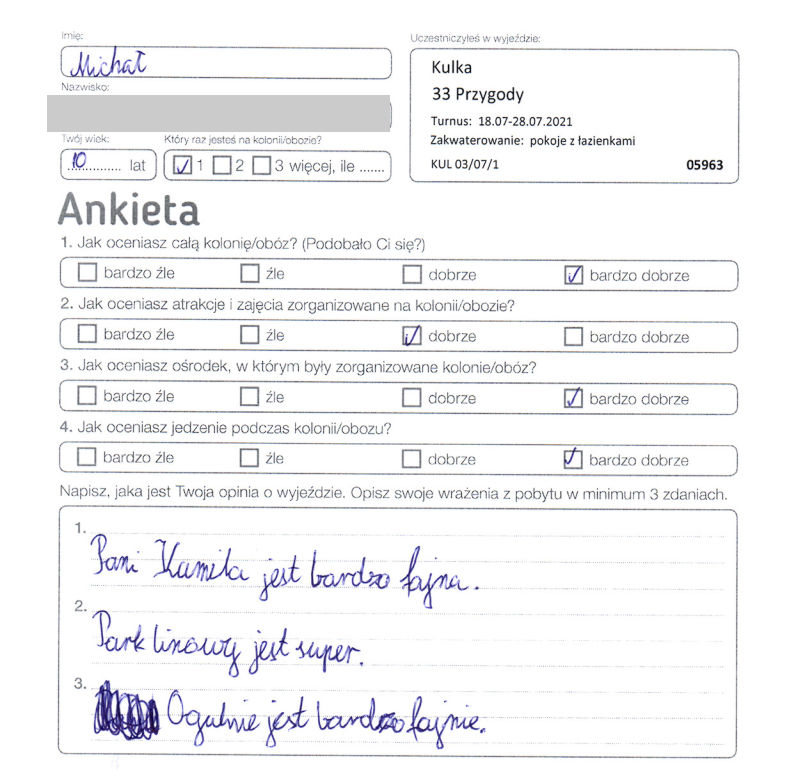 Imię:
Michał
Nazwisko:
Twój wiek:
10 lat
Który raz jesteś na kolonii/obozie?
1 2 3 więcej, ile .......
Uczestniczyłeś w wyjeździe:
Kulka
33 Przygody
Turnus: 18.07-28.07.2021
Zakwaterowanie: pokoje z łazienkami
KUL 03/07/1 05963
Ankieta
1. Jak oceniasz całą kolonię/obóz? (Podobało Ci się?)
bardzo źle źle dobrze bardzo dobrze
2. Jak oceniasz atrakcje i zajęcia zorganizowane na kolonii/obozie?
bardzo źle źle dobrze bardzo dobrze
3. Jak oceniasz ośrodek, w którym były zorganizowane kolonie/obóz?
bardzo źle źle dobrze bardzo dobrze
4. Jak oceniasz jedzenie podczas kolonii/obozu?
bardzo źle źle dobrze bardzo dobrze
Napisz, jaka jest Twoja opinia o wyjeździe. Opisz swoje wrażenia z pobytu w minimum 3 zdaniach.
1. Pani Kamila jest bardzo fajna.
2. Park linowy jest super.
3. Ogulnie jest bardzo fajnie.